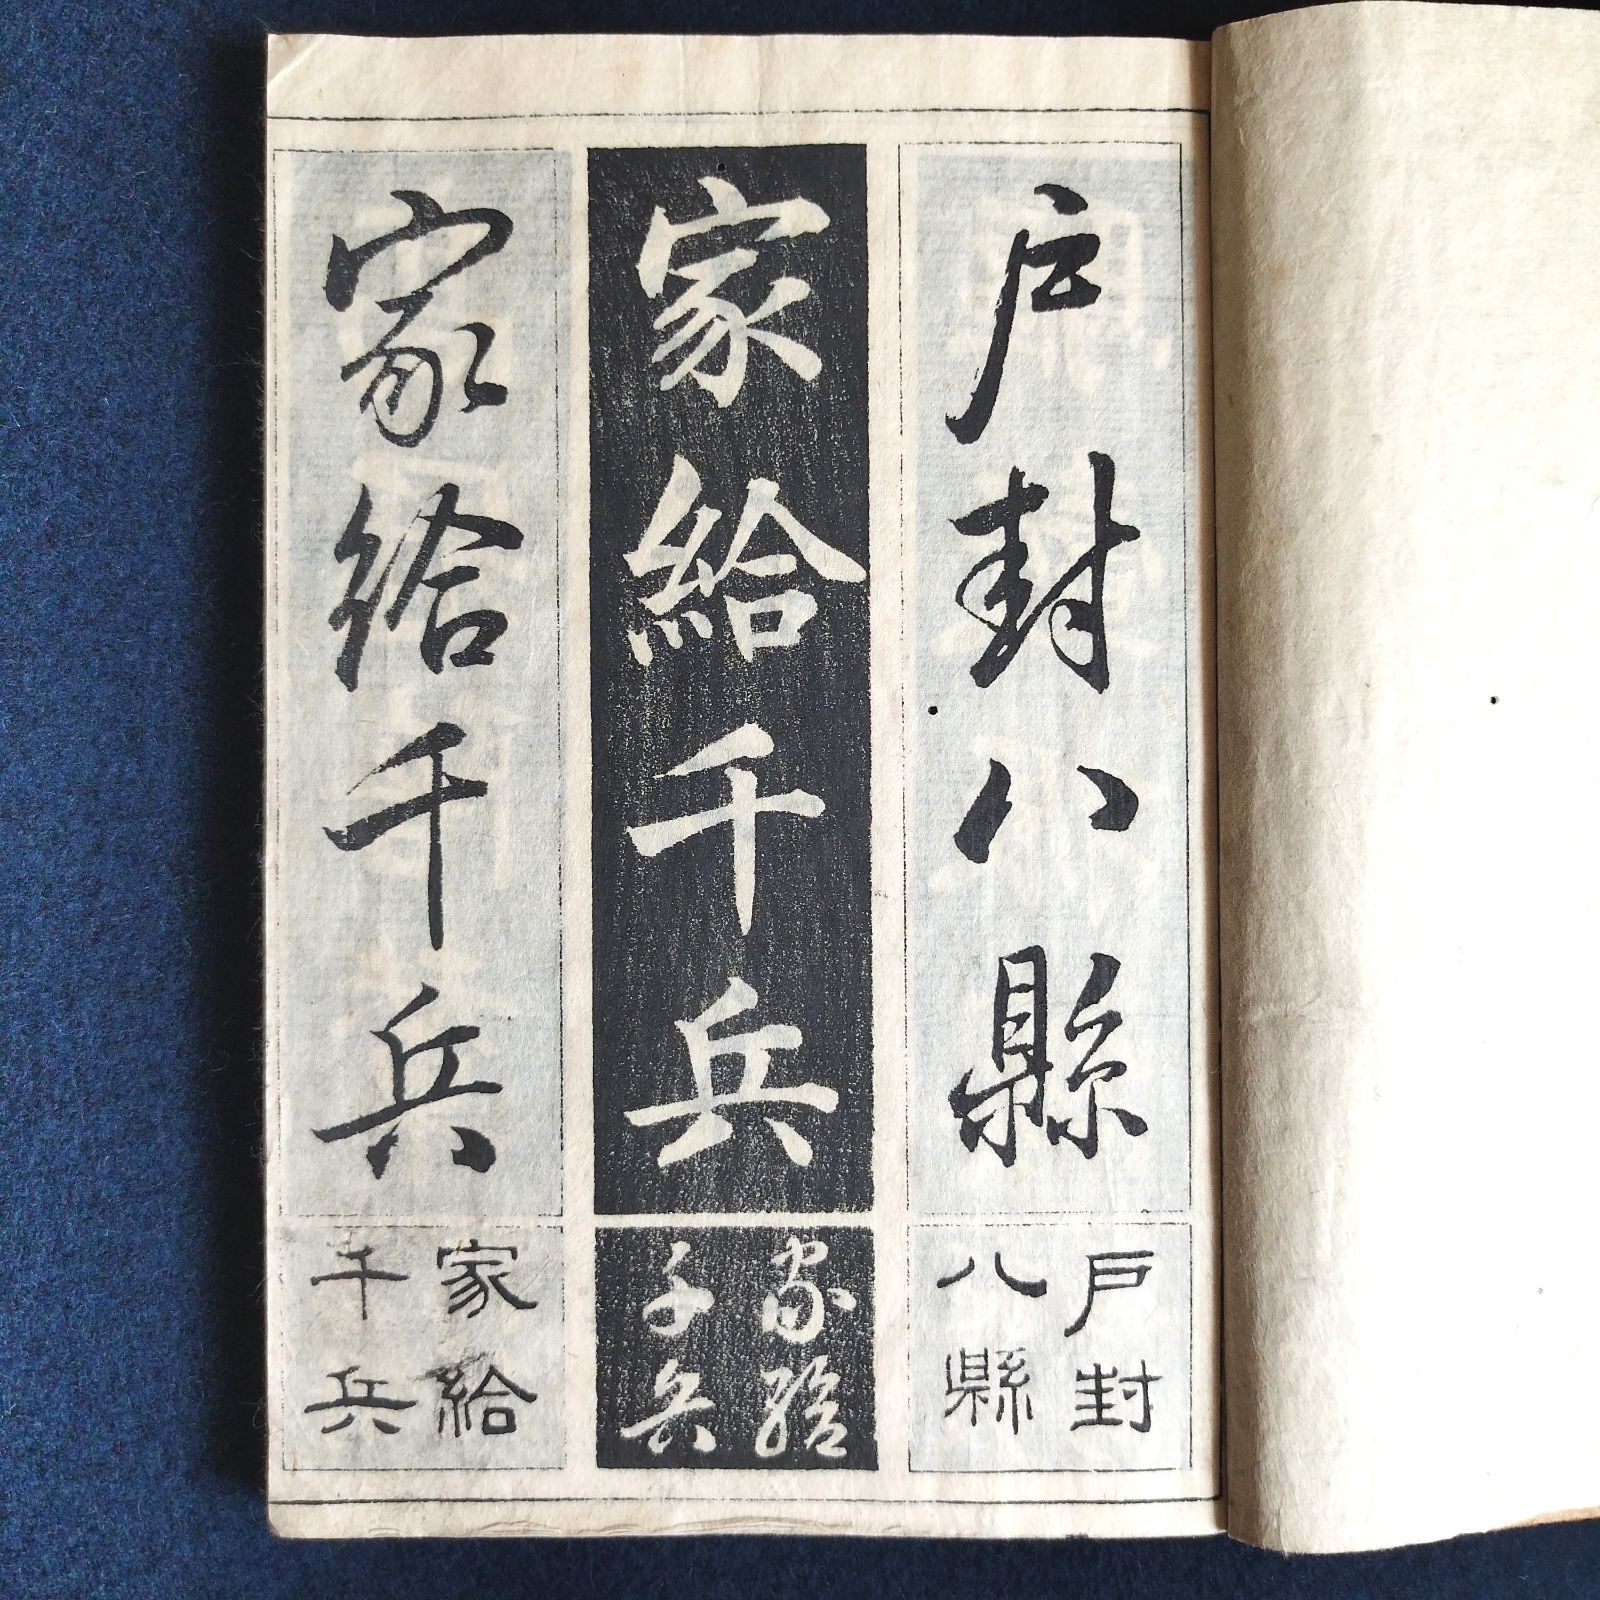 戸封八縣
戸封
八縣
家給千兵
家給
千兵
家給千兵
家給
千兵